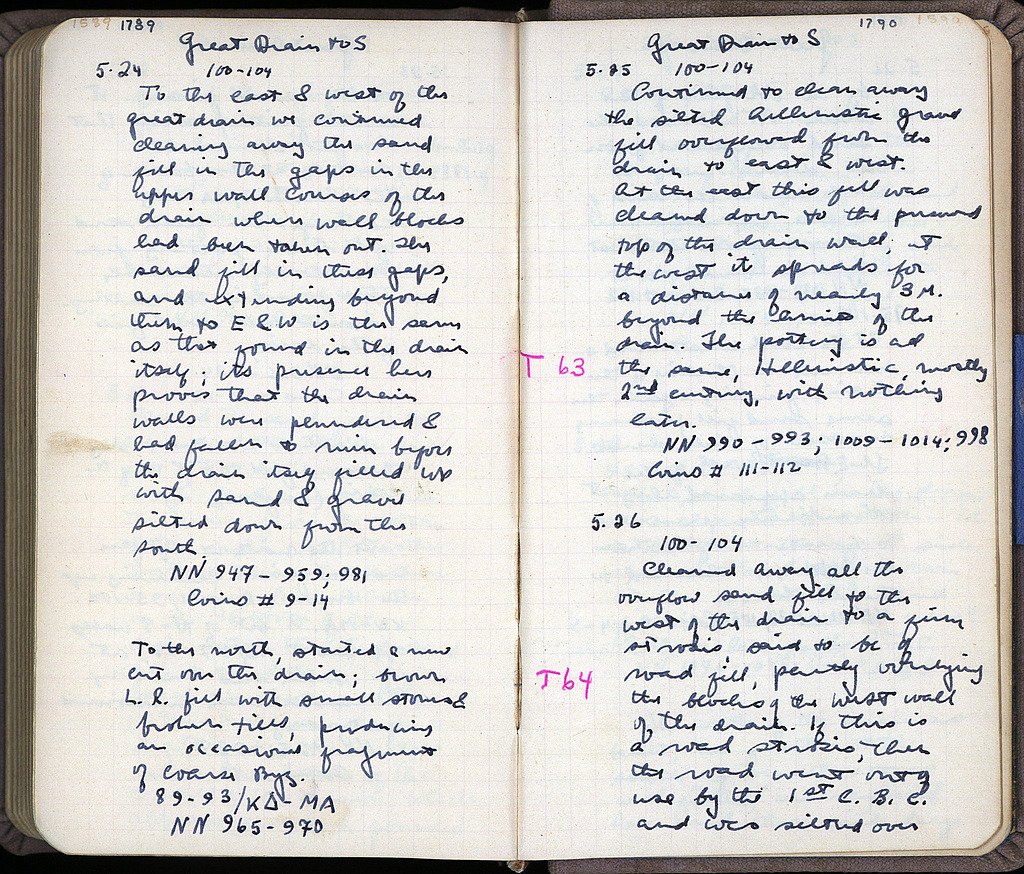 1589 1789
Great Drain to S
5.24 100-104
To the east & west of the
great drain we continued
clearing away the sand
fill in the gaps in the
upper wall courses of the
drain where wall blocks
had been taken out. The
sand fill in these gaps,
and extending beyond
them to E & W is the same
as that found in the drain
itself; its presence here
proves that the drain
walls were plundered &
had fallen to ruin before
the drain itself filled up
with sand & gravel
silted down from the
south.
NN 947-959; 981
Coins # 9-14
To the north, started a new
cut over the drain; brown
L.R. fill with small stones &
broken tiles, producing
an occasional fragment
of coarse Byz.
89-93/ΚΔ-ΜΑ
NN 965-970
1790 1590
Great Drain to S
5.25 100-104
Continued to clear away
the silted Hellenistic gravel
fill overflowed from the
drain to east & west.
At the east this fill was
cleared down to the preserved
top of the drain wall; at
the west it spreads for
a distance of nearly 3 M.
beyond the limits of the
drain. The pottery is all
T 63
the same, Hellenistic, mostly
2nd century, with nothing
later.
NN 990-993; 1009-1014; 998
Coins # 111-112
5.26
100-104
Cleared away all the
overflow sand fill to the
west of the drain to a firm
strosis said to be of
T 64
road fill, partly overlying
the blocks of the west wall
of the drain. If this is
a road strosis, then
the road went out of
use by the 1st C. B.C.
and was silted over